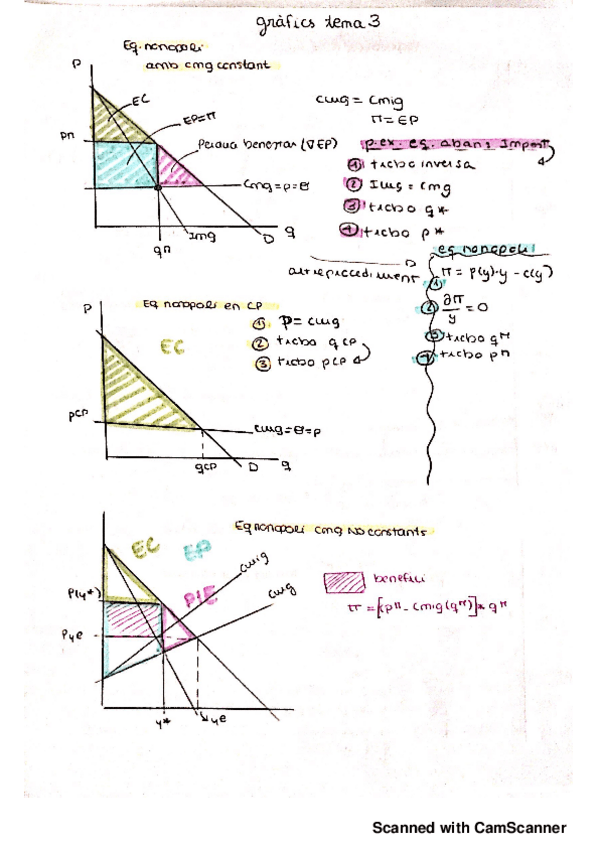 gràfics tema 3
Eq. monopoli
amb cmg constant
P
EC
EP=π
Pèrdua benestar (∇EP)
pᵐ
Cmg=p=
Img
D
q
qᵐ
cmg = cmig
π=EP
p.ex. eq. abans Impost
① trobo inversa
② Img = cmg
③ trobo q*
④ trobo p*
altre procediment
eq monopoli
① π = p(y)·y - c(y)
② ∂π/y = 0
③ trobo qᵐ
④ trobo pᵐ
Eq monopoli en CP
P
EC
① P= cmg
② trobo qcp
③ trobo pcp
pcp
cmg= =p
qcp
D
q
Eq monopoli cmg No constants
EC
EP
PIE
cmig
cmg
P(y*)
Pye
y*
ye
benefici
π =[(pᵐ - cmig(qᵐ)]* qᵐ
Scanned with CamScanner